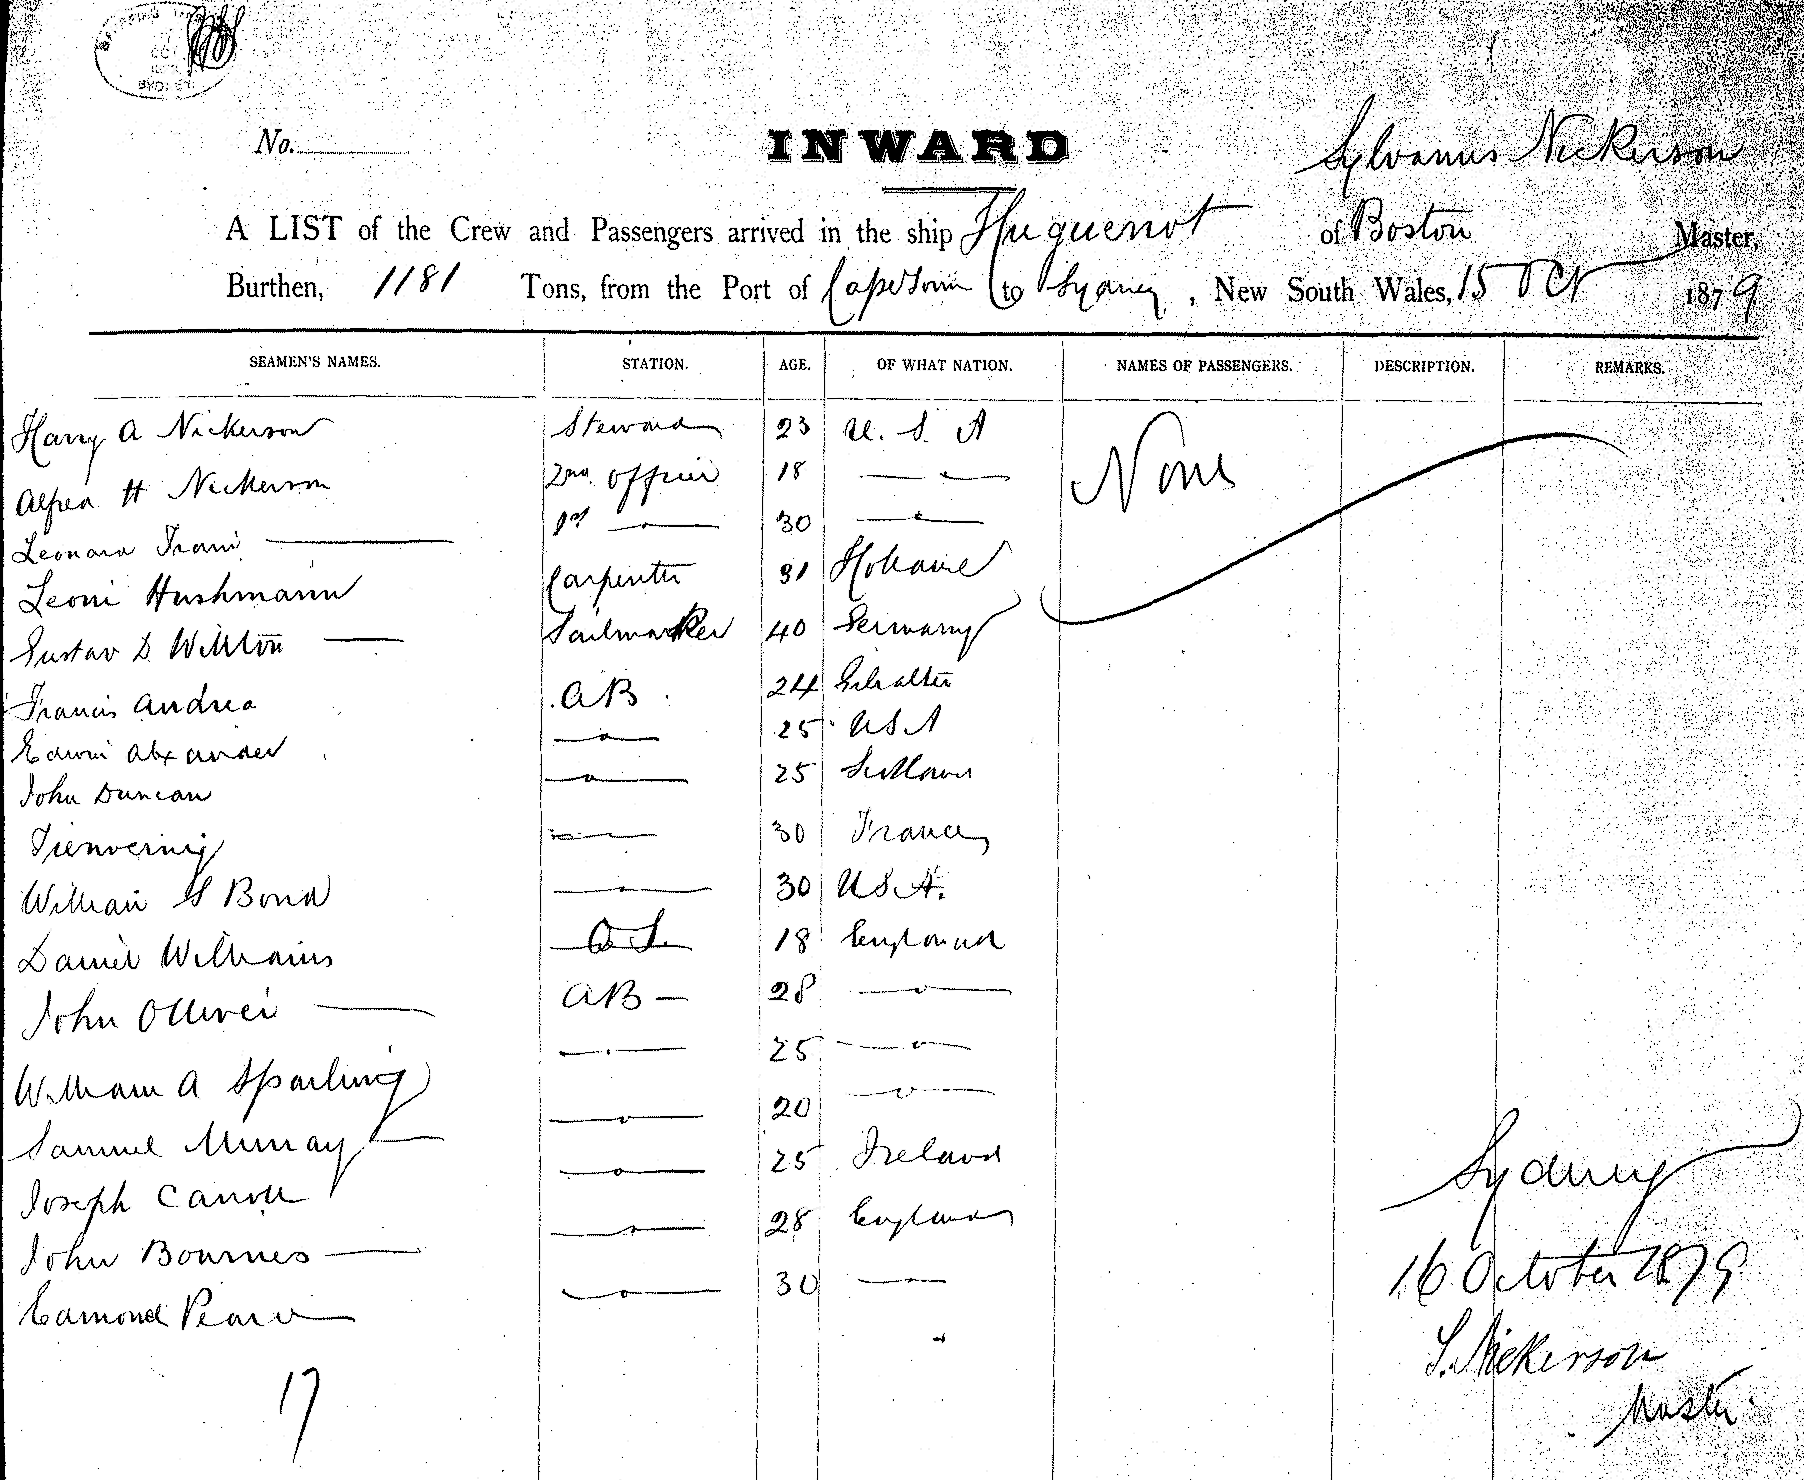 No.
INWARD
Sylvanus Nickerson
A LIST of the Crew and Passengers arrived in the ship Huguenot of Boston Master,
Burthen, 1181 Tons, from the Port of Capetown to Sydney, New South Wales, 15 Oct 1879
SEAMEN'S NAMES. STATION. AGE. OF WHAT NATION. NAMES OF PASSENGERS. DESCRIPTION. REMARKS.
Harry A Nickerson Steward 23 U. S. A None
Alfred H Nickerson 2nd officer 18 — " —
Leonard 1st — " — 30 — " —
Hushmann Carpenter 31
Gustav D Sailmaker 40 Germany
Francis Andrea AB 24 Gibralter
Edwin Alexander — " — 25 USA
John Duncan — " — 25
— " — 30 France
William S Bond — " — 30 USA.
Daniel Williams O S. 18 England
John Olliver AB — 28 — " —
William A Sparling — " — 25 — " —
Samuel Murray — " — 20 — " —
Joseph Carroll — " — 25 Ireland
John Bournes — " — 28 England
Edmond Pearce — " — 30 — " —
17
Sydney
16 October 1879
S. Nickerson
Master